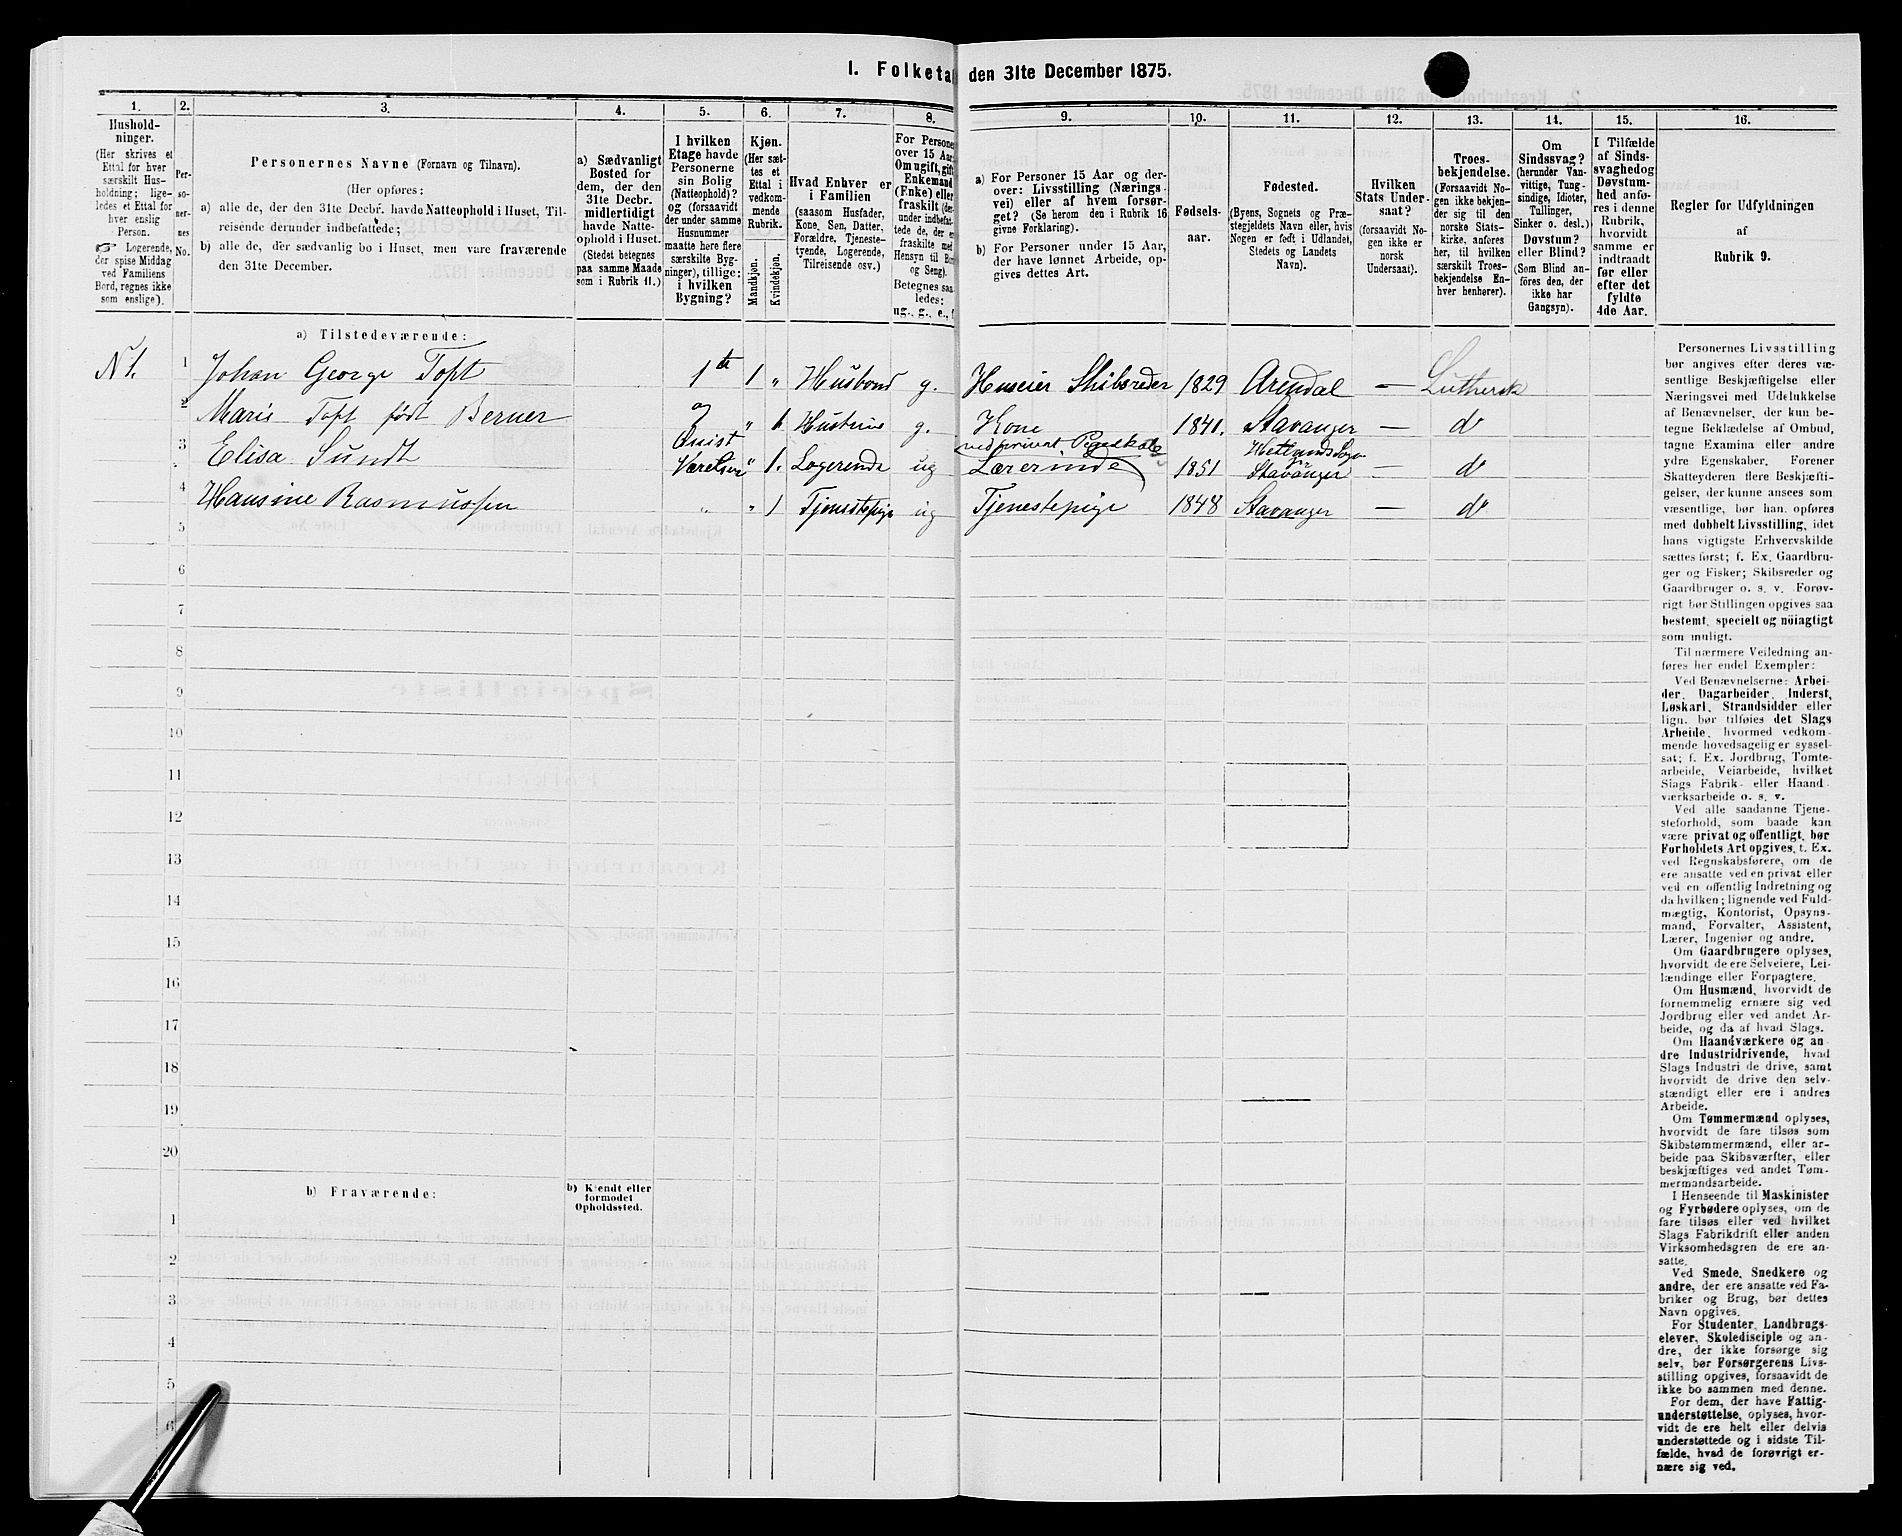 I. Folketal den 31te December 1875.
1.
2.
3.
4.
5.
6.
7.
8.
9.
10.
11.
12.
13.
14.
15.
16.
Hushold-
ninger.
(Her skrives et
Ettal for hver
særskilt Hus-
holdning; lige-
ledes et Ettal for
hver enslig
Person.
☞ Logerende,
der spise Middag
ved Familiens
Bord, regnes ikke
som enslige).
Per-
so-
ner-
nes
No.
Personernes Navne (Fornavn og Tilnavn).
(Her opføres:
a) alle de, der den 31te Decbr. havde Natteophold i Huset, Til-
reisende derunder indbefattede;
b) alle de, der sædvanlig bo i Huset, men vare fraværende
den 31te December.
a) Sædvanligt
Bosted for
dem, der den
31te Decbr.
midlertidigt
havde Natte-
ophold i Huset.
(Stedet betegnes
paa samme Maade
som i Rubrik 11.)
I hvilken
Etage havde
Personerne
sin Bolig
(Natteophold)?
og (forsaavidt
der under samme
Husnummer
maatte høre flere
særskilte Byg-
ninger), tillige:
i hvilken
Bygning?
Kjøn.
(Her sæt-
tes et
Ettal i
vedkom-
mende
Rubrik.
Mandkjøn.
Kvindekjøn.
Hvad Enhver er
i Familien
(saasom Husfader,
Kone, Søn, Datter,
Forældre, Tjeneste-
tyende, Logerende,
Tilreisende osv.)
For Persone
over 15 Aar:
Om ugift, gift
Enkemand
(Enke) eller
fraskilt (de
under indbefat-
tede de, der er
fraskilte med
Hensyn til Bor
og Seng).
Betegnes saa
ledes:
ug., g., e., f
a) For Personer 15 Aar og der-
over: Livsstilling (Nærings-
vei) eller af hvem forsør-
get? (Se herom den i Rubrik 16
givne Forklaring).
b) For Personer under 15 Aar,
der have lønnet Arbeide, op-
gives dettes Art.
Fødsels-
aar.
Fødested.
(Byens, Sognets og Præ-
stegjeldets Navn eller, hvis
Nogen er født i Udlandet,
Stedets og Landets
Navn).
Hvilken
Stats Under-
saat?
(forsaavidt No-
gen ikke er
norsk
Undersaat).
Troes-
bekjendelse.
(Forsaavidt No-
gen ikke bekjen-
der sig til den
norske Stats-
kirke, anføres
her, til hvilken
særskilt Troes-
bekjendelse En-
hver henhører).
Om
Sindssvag?
(herunder Van-
vittige, Tung-
sindige, Idioter,
Tullinger,
Sinker o. desl.)
Døvstum?
eller Blind?
(Som Blind an-
føres den, der
ikke har
Gangsyn).
I Tilfælde
af Sinds-
svaghed og
Døvstum-
hed anfø-
res i denne
Rubrik,
hvorvidt
samme er
indtraadt
før eller
efter det
fyldte
4de Aar.
Regler for Udfyldningen
af
Rubrik 9.
a) Tilstedeværende:
N 1. 1 Johan George Toft 1ste 1 " Husbond g. Huseier Skibsreder 1829 Arendal — Luthersk
2 Maris Toft født Berner og " 1 Hustrue g. Kone 1840. Stavanger — do
3 Elisa Sundt Qvist Værelser " 1. Logerende ug ved privat Pigeskole Lærerinde 1851 Hetlands Sogn Stavanger — do
4 Hansine Rasmussen " " 1 Tjenestepige ug Tjenestepige 1848 Stavanger — do
5
6
7
8
9
10
11
12
13
14
15
16
17
18
19
20
b) Fraværende:
b) Kjendt eller
formodet
Opholdssted.
1
2
3
4
5
6
Personernes Livsstilling
bør angives efter deres væ-
sentlige Beskjæftigelse eller
Næringsvei med Udelukkelse
af Benævnelser, der kun be-
tegne Beklædelse af Ombud,
tagne Examina eller andre
ydre Egenskaber. Forener
Skatteyderen flere Beskjæfti-
gelser, der kunne ansees som
væsentlige, bør han opføres
med dobbelt Livsstilling, idet
hans vigtigste Erhvervskilde
sættes først; f. Ex. Gaardbru-
ger og Fisker; Skibsreder og
Gaardbruger o. s. v. Forøv-
rigt bør Stillingen opgives saa
bestemt, specielt og nöiagtigt
som muligt.
Til nærmere Veiledning an-
føres her endel Exempler:
Ved Benævnelserne: Arbei-
der, Dagarbeider, Inderst,
Løskarl, Strandsidder eller
lign. bør tilføies det Slags
Arbeide, hvormed vedkom-
mende hovedsagelig er syssel-
sat; f. Ex. Jordbrug, Tomte-
arbeide, Veiarbeide, hvilket
Slags Fabrik- eller Haand-
værksarbeide o. s. v.
Ved alle saadanne Tjene-
steforhold, som baade kan
være privat og offentligt, bør
Forholdets Art opgives, t. Ex.
ved Regnskabsførere, om de
ere ansatte ved en privat eller
ved en offentlig Indretning og
da hvilken; lignende ved Fuld-
mægtig, Kontorist, Opsyns-
mand, Forvalter, Assistent,
Lærer, Ingeniør og andre.
Om Gaardbrugere oplyses,
hvorvidt de ere Selveiere, Lei-
lændinge eller Forpagtere.
Om Husmænd, hvorvidt de
fornemmelig ernære sig ved
Jordbrug eller ved andet Ar-
beide, og da af hvad Slags.
Om Haandværkere og an-
dre Industridrivende, hvad
Slags Industri de drive, samt
hvorvidt de drive den selv-
stændigt eller ere i andres
Arbeide.
Om Tømmermænd oplyses,
hvorvidt de fare tilsøs som
Skibstømmermænd, eller ar-
beide paa Skibsværfter, eller
beskjæftiges ved andet Tøm-
mermandsarbeide.
I Henseende til Maskinister
og Fyrbødere oplyses, om de
fare tilsøs eller ved hvilket
Slags Fabrikdrift eller anden
Virksomhedsgren de ere an-
satte.
Ved Smede, Snedkere og
andre, der ere ansatte ved Fa-
briker og Brug, bør dettes
Navn opgives.
For Studenter, Landbrugs-
elever, Skoledisciple og an-
dre, der ikke forsørge sig
selv, bør Forsørgerens Livs-
stilling opgives, forsaavidt de
ikke bo sammen med denne.
For dem, der have Fattig-
understøttelse, oplyses, hvor-
vidt de ere helt eller delvis
understøttede og i sidste Til-
fælde, hvad de forøvrigt er-
nære sig ved.